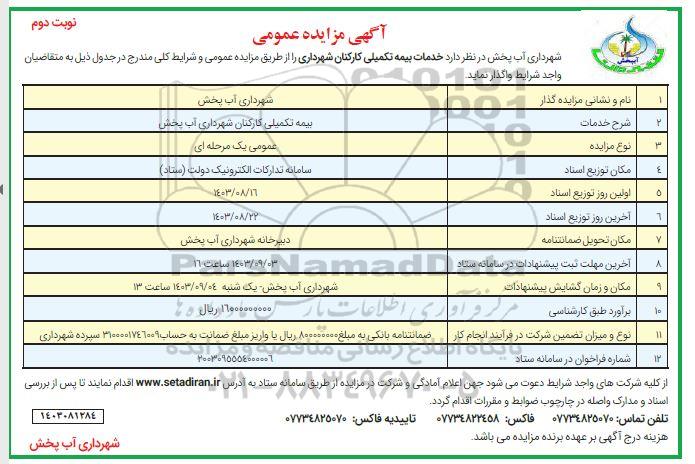 نوبت دوم
آگهی مزایده عمومی
آبپخش
شهرداری آب پخش در نظر دارد خدمات بیمه تکمیلی کارکنان شهرداری را از طریق مزایده عمومی و شرایط کلی مندرج در جدول ذیل به متقاضیان
واجد شرایط واگذار نماید.
۱ نام و نشانی مزایده گذار شهرداری آب پخش
۲ شرح خدمات بیمه تکمیلی کارکنان شهرداری آب پخش
۳ نوع مزایده عمومی یک مرحله ای
۴ مکان توزیع اسناد سامانه تدارکات الکترونیک دولت (ستاد)
۵ اولین روز توزیع اسناد ۱۴۰۳/۰۸/۱۶
۶ آخرین روز توزیع اسناد ۱۴۰۳/۰۸/۲۲
۷ مکان تحویل ضمانتنامه دبیرخانه شهرداری آب پخش
۸ آخرین مهلت ثبت پیشنهادات در سامانه ستاد ۱۴۰۳/۰۹/۰۳ ساعت ۱۶
۹ مکان و زمان گشایش پیشنهادات شهرداری آب پخش- یک شنبه ۱۴۰۳/۰۹/۰۴ ساعت ۱۳
۱۰ برآورد طبق کارشناسی ریال
۱۱ نوع و میزان تضمین شرکت در فرآیند انجام کار ضمانتنامه بانکی به مبلغ ریال یا واریز مبلغ ضمانت به حساب ۳۱۰۰۰۰۱۷۴۶۰۰۹ سپرده شهرداری
۱۲ شماره فراخوان در سامانه ستاد ۲۰۰۳۰۹۵۵۵۴۰۰۰۰۰۶
ParsNamadData
مرکز فرآوری اطلاعات پارس نماد داده ها
پایگاه اطلاع رسانی مناقصه و مزایده
۰۲۱-۸۸۳۴۹۶۷۰-۵
از کلیه شرکت های واجد شرایط دعوت می شود جهت اعلام آمادگی و شرکت در مزایده از طریق سامانه ستاد به آدرس www.setadiran.ir اقدام نمایند تا پس از بررسی
اسناد و مدارک واصله در چارچوب ضوابط و مقررات اقدام گردد.
تلفن تماس: ۰۷۷۳۴۸۲۵۰۷۰ فاکس: ۰۷۷۳۴۸۲۲۴۵۸ تاییدیه فاکس: ۰۷۷۳۴۸۲۵۰۷۰
۱۴۰۳۰۸۱۲۸۴
هزینه درج آگهی بر عهده برنده مزایده می باشد.
شهرداری آب پخش